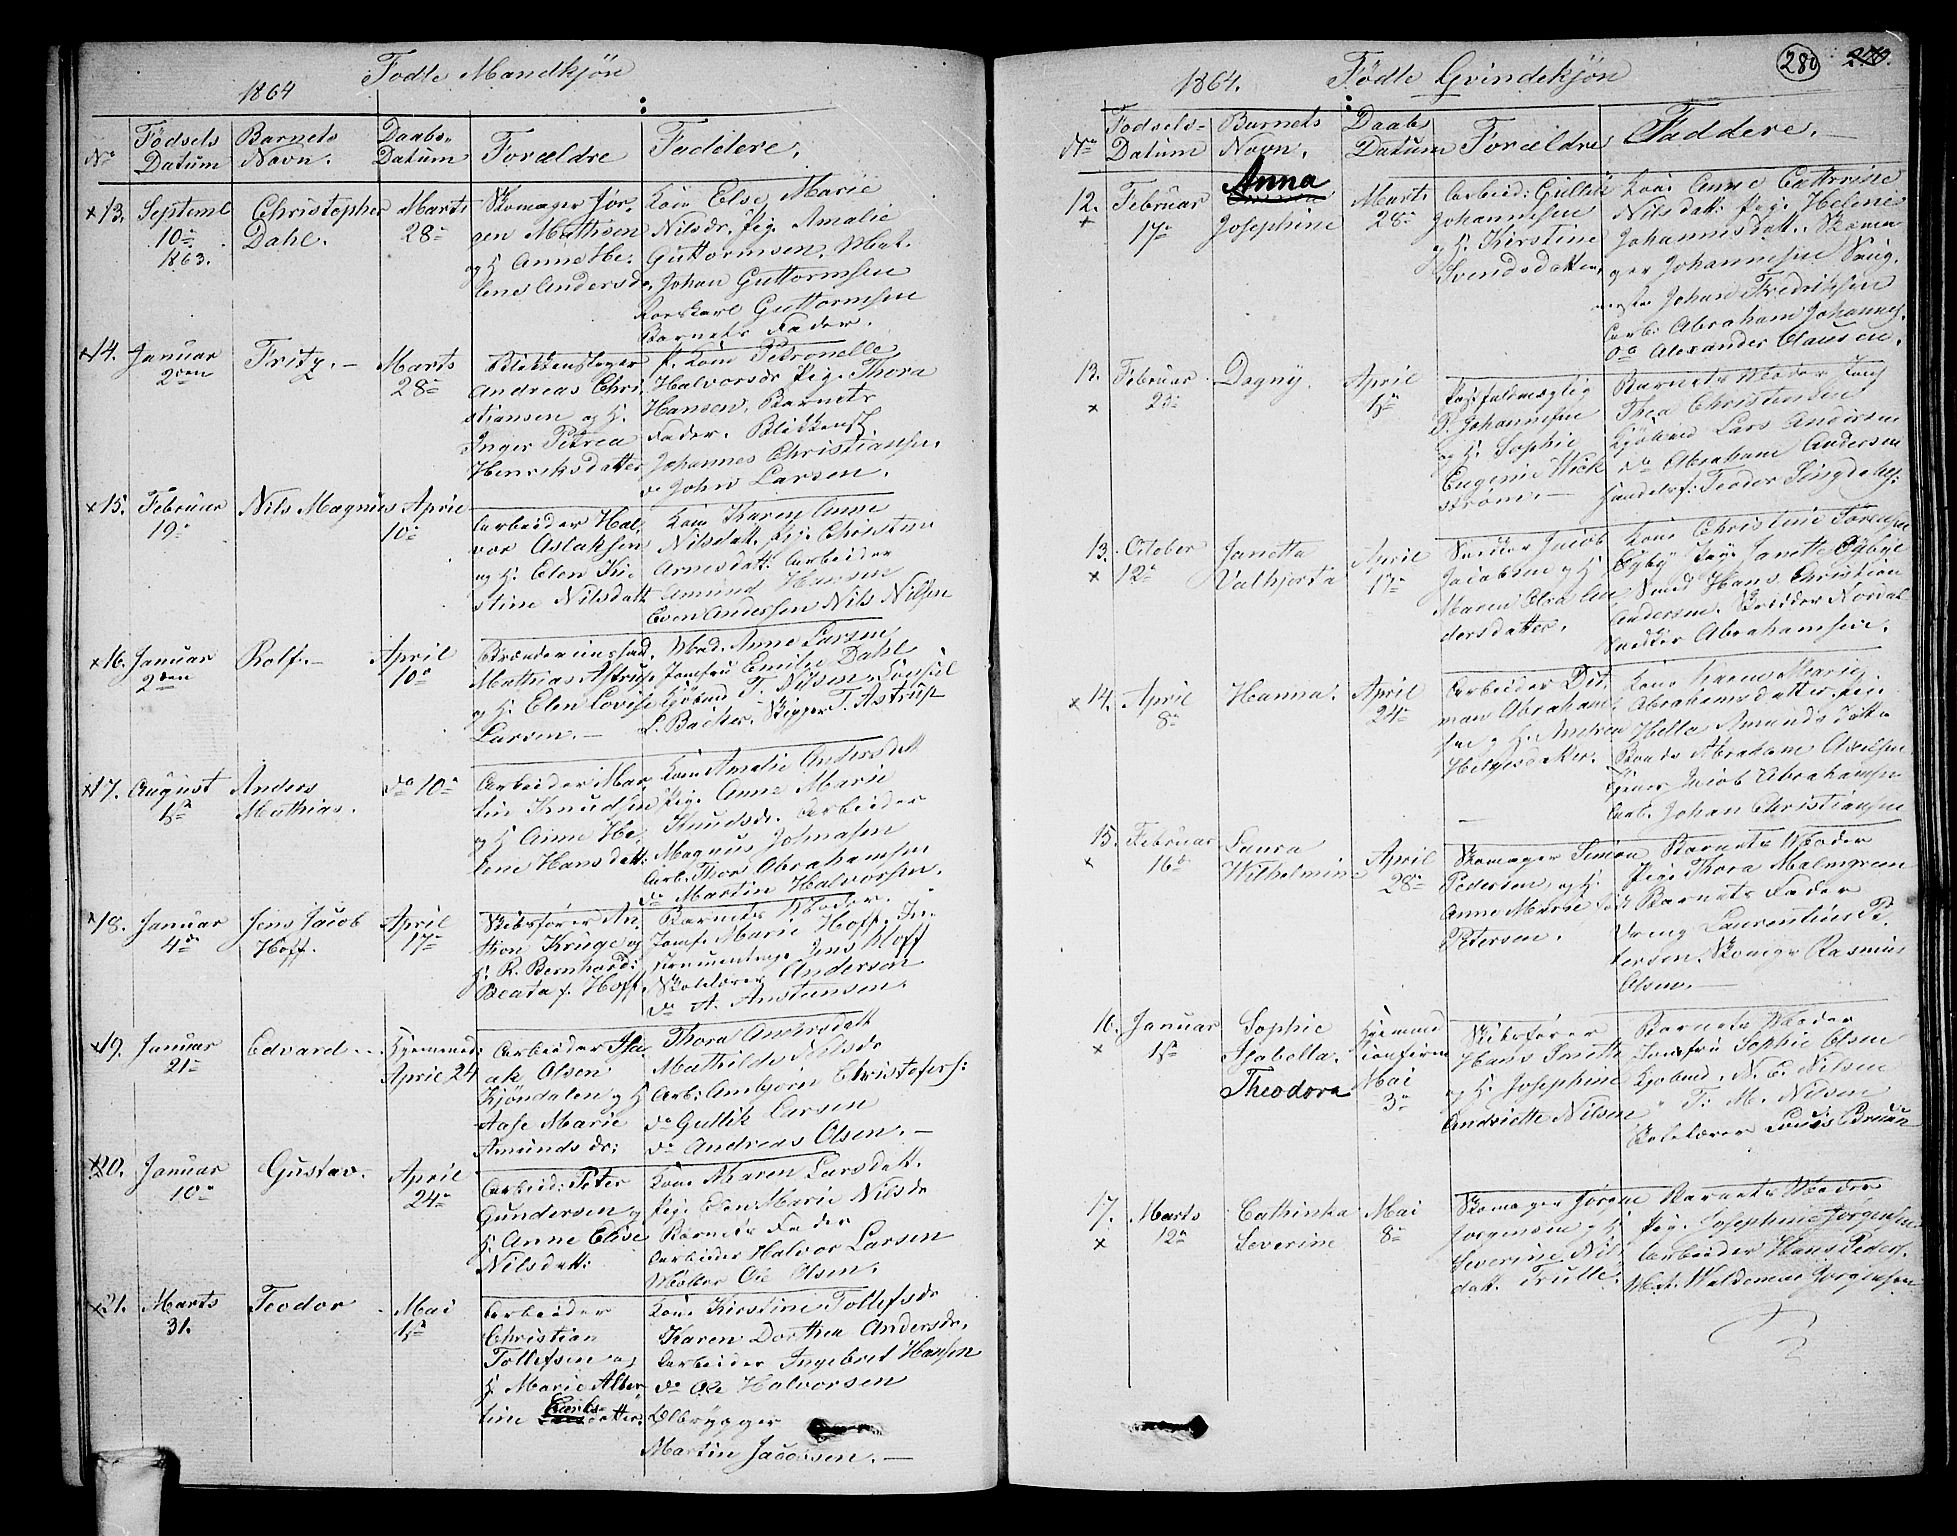 Fødte Mandkjøn
1864
No
Fødsels Datum
Barnets Navn.
Daabs-Datum
Forældre
Faddere.
13.
Septembr
10de
1863.
Christopher
Dahl.
Marts
28de
Skomager Jør-
gen Mathisen
og H. Anne He-
lene Andersdr.
Kone Else Marie
Nilsdr. Pig. Amalie
Guttormsen, Mat.
Johan Guttormsen
Karl Guttormsen
Barnets Fader.
14.
Januar
2den
Fritz.
Marts
28de
Blikkenslager
Andreas Chri
stiansen og H.
Inger Petrea
Henriksdatter
Kone Petronelle
Halvorsdr Pig. Thora
Hansen, Barnets
Fader. Blikkensl.
Johannes Christiansen.
do John Larsen.
15.
Februar
19de
Nils Magnus
April
10de
Arbeider Hal
vor Aslaksen
og H. Elen Kir
stine Nilsdatt
Kone Karen Anne
Nilsdatt. Pig. Christine
Arnesdatt: Arbeider
Amund Hansen
Even Andersen Nils Nilsen
16.
Januar
2den
Rolf.
April
10de
Mathias Astrup
og H. Elen Lovise
Larsen.
Mad. Anne Larsen
Jomfru Emilie Dahl
Kjøbmd T. Nilsen Consul
L. Backer, Skipper T. Astrup
17.
August
1ste
Anders
Mathias.
do 10de
Arbeider Mar
tin Knudsen
og H. Anne He-
lene Hansdatt:
Kone Amalie Andersdatt
Pig. Anne Marie
Knudsdr. Arbeider
Magnus Johnasen
Arb. Thor Abrahamsen
do Martin Halvorsen.
18.
Januar
4de
Jens Jacob
Hoff.
April
17de
Skibsfører An
thon Kruge og
H. R. Bernhard:
Beata f. Hoff
Barnets Moder.
Jomf. Marie Hoff. In-
Jens Hoff
Skolelærer Andersen
do A. Anstensen.
19.
Januar
21de
Edvard
Hjemmed:
April 24
Arbeider Isa
ak Olsen
Kjøndalen og H
Aase Marie
Amundsdr:
Thora Andersdatt
Mathilde Nilsdr
Arb: Ambjörn Christofers:
do Gullik Larsen
do Andreas Olsen.
20.
Januar
10de
Gustav.
April
24de
Arbeid: Peter
Gundersen og
H. Anne Elise
Nilsdatt:
Kone Maren Larsdatt.
Pig. Elen Marie Nilsdr
Barnets Fader
Arbeider Halvor Larsen
Møller Ole Olsen.
21.
Marts
31.
Teodor
Mai
1ste
Arbeider
Christian
Tollefsen og
H. Marie Alber
tine Larsdatter.
Kone Kirstine Tollefsdr
Karen Dorthea Andersdr.
Arbeider Ingebret Hansen
do Ole Halvorsen
Ølbrygger
Martin Jacobsen.
280
270.
1864.
Fødte Qvindekjøn
No
Fødsels-Datum
Barnets Navn.
Daabs Datum
Forældre
Faddere.
12.
Februar
17de
Anna
Josephine
Marts
28de
Arbeid: Gullik
Johannesen
og H. Kirstine
Svendsdatter.
Kone Anne Cathrine
Nilsdatt: Pig. Helene
Johannesdatt. Skoma
ger Johannesen
Johan Fredriksen
Arb: Abraham Johannes.
og Alexander Clausen.
13.
Februar
23de
Dagny.
April
1ste
D. Johannesen
og H. Sophie
Eugenie Wick
strøm.
Barnets Moder Jomf
Thea Christensen
Kjøbmd Lars Andersen
do Abraham Andersen
Handelsf: Teodor
13.
October
12de
Janetta
Valhjerta
April
17de
Snedker Jacob
Jacobsen og H
Maren Abra An
dersdatter.
Kone Christine
Egby Pig. Janette Egbye
Smed Hans Christian
Andersen. Snedker
Snedker Abrahamsen.
14.
April
8de
Hanna.
April
24de
Arbeider Dit
man Abraham
sen og H. Andrea
Helgesdatter.
Kone Karen Marie
Abrahamsdatter. Pige
Hella Amundsdatter
Abraham Olsen
Jacob Abrahamsen
Arb. Johan Christiansen
15.
Februar
16de
Laura
Wilhelmine
April
28de
Skomager Simon
Pedersen, og H.
Anne Marie
Petersen.
Barnets Moder
Pig: Thora Malmgreen
Barnets Fader
Dreng Laurentius Pe
tersen, Skomager Rasmus
Olsen.
16.
Januar
1ste
Sophie
Isabella.
Theodora
Hjemmed
confirm
Mai
3de
Skibsfører
Hans Smith
og H. Josephine
Andriette Nilsen
Barnets Moder
Jomfru Sophie Olsen
Kjøbmd. N. C. Nilsen
" T. M. Nilsen
Skolelærer Louis Bruun
17.
Marts
12de
Cathinka
Severine
Mai
8de
Skomager Jørgen
Jørgensen og H
Severine Nils
datt. Trulle.
Barnets Moder
Pig. Josephine Jørgensen
Arbeider Hans Peders.
Mat. Waldemar Jørgensen